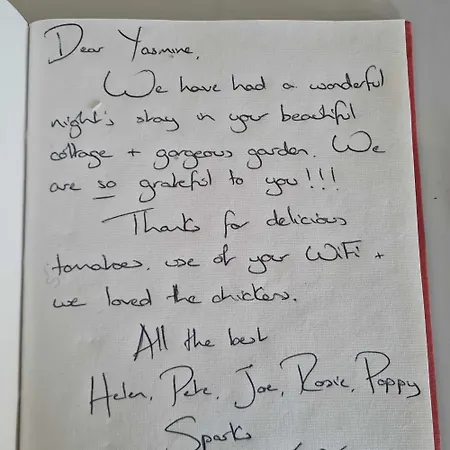 Dear Yasmine,
We have had a wonderful
night's stay in your beautiful
cottage + gorgeous garden. We
are so grateful to you!!!
Thanks for delicious
tomatoes, use of your WiFi +
we loved the chickens.
All the best
Helen, Pete, Joe, Rosie, Poppy
Sparks